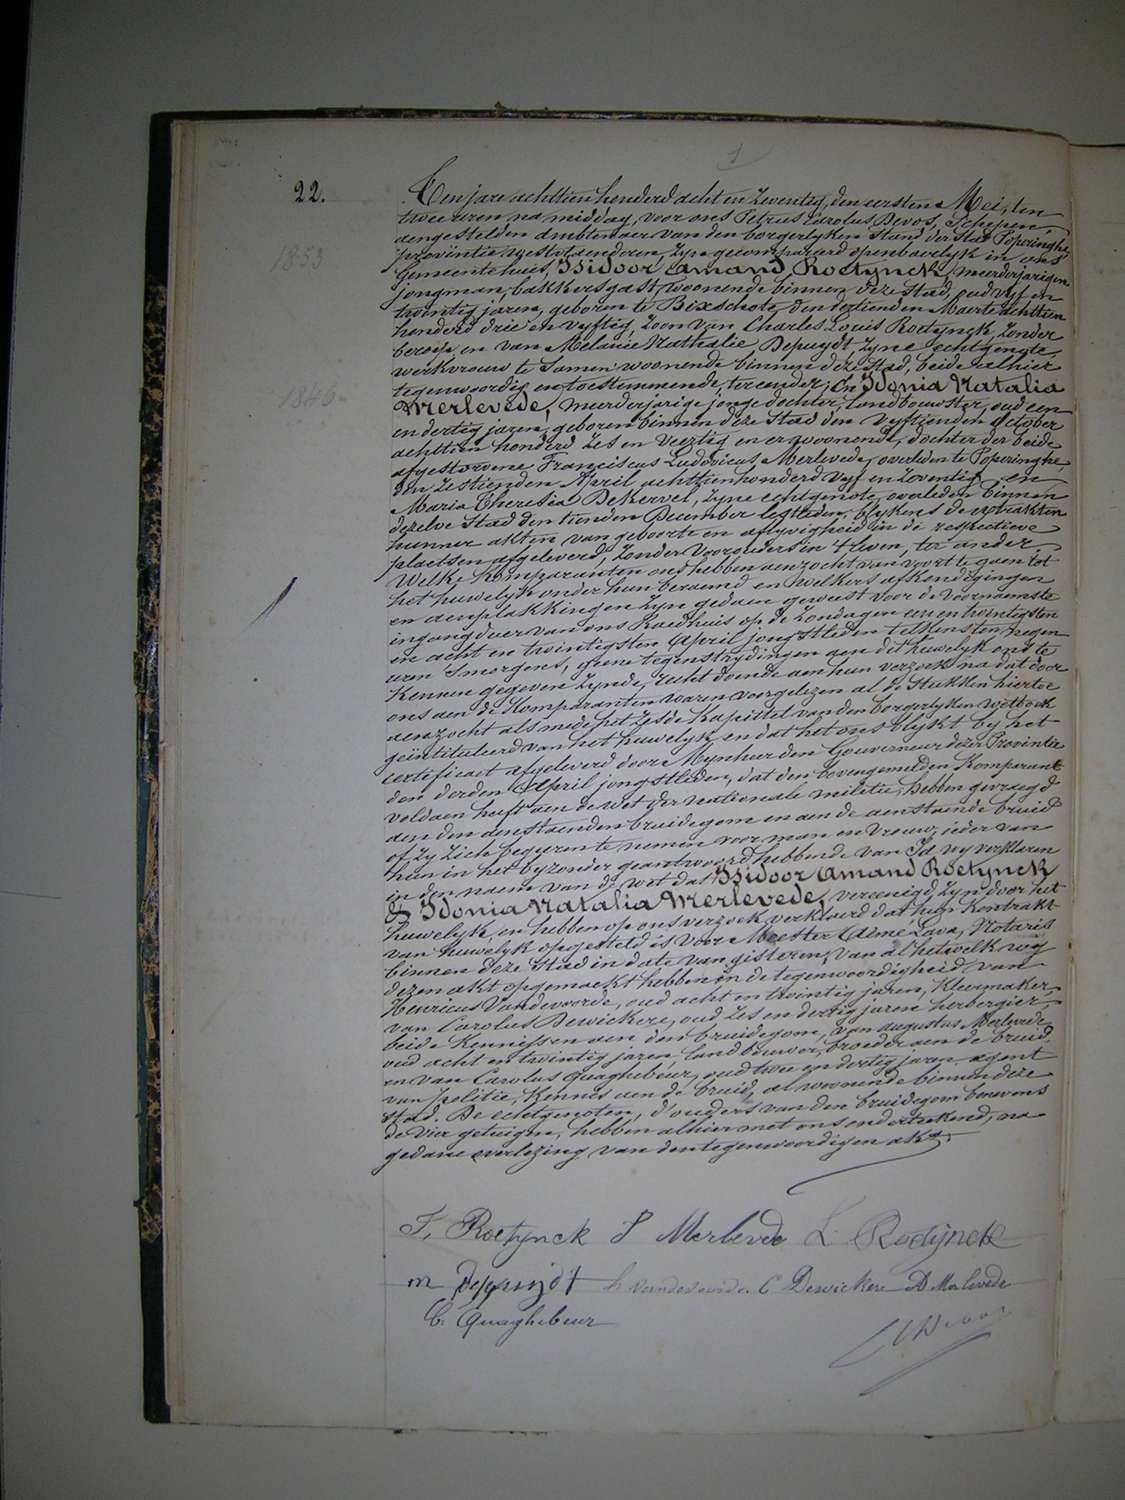 1
22.
Ten jare achttien honderd acht en zeventig, den eersten Mei, ten
twee uren na middag, voor ons Petrus Carolus Devos, Schepen,
aengestelden ambtenaer van den borgerlyken stand der Stad Poperinghe,
provintie westvlaenderen, zyn gecompareerd openbaerlyk in ons
1853
Gemeentehuis, Isidoor Amand Roetynck, meerderjarigen
jongman, bakkersgast, woonende binnen deze Stad, oud vyf en
twintig jaren, geboren te Bixschote, den Maerte achttien
honderd drie en vyftig, Zoon van Charles Louis Roetynck, zonder
beroep, en van Mélanie Nathalie Depuydt zyne echtgenote,
werkvrouw te Samen woonende binnen deze Stad, beide alhier
tegenwoordig en toestemmende, ter eender; En Idonia Natalia
1846
Merlevede, meerderjarige jonge dochter, landbouwster, oud een
en dertig jaren, geboren binnen deze Stad den vyftienden October
achttien honderd zes en veertig en er woonende, dochter der beide
afgestorvene Franciscus Ludovicus Merlevede, overleden te Poperinghe,
den zestienden April achttien honderd vyf en zeventig en
Maria Theresia DeKervel, zyne echtgenote, overleden binnen
dezelve Stad den tienden December lestleden, blykens de extrakten
hunner akten van geboorte en aflyvigheid in de respectieve
plaetsen afgeleverd, zonder voorouders in 't leven, ter ander.
Welke Komparanten ons hebben aenzocht van voort te gaen tot
het huwelyk onder hun beraemd en welkers afkondigingen
en aenplakkingen zyn gedaen geweest voor de voornaemste
ingangdeur van ons Raedhuis op de Zondagen een en twintigsten
en acht en twintigsten April jongstleden telkensten negen
uren 's morgens, geene tegenstrydingen aen dit huwelyk ons te
kennen gegeven zynde, recht doende aen hun verzoek na dat door
ons aen de Komparanten waren voorgelezen al de Stukken hiertoe
aenzocht alsmede het zesde Kapittel van den borgerlyken Wetboek
geïntituleerd van het huwelyk en dat het ons blykt by het
certificaet afgeleverd door Mynheer den Gouverneur dezer Provintie
den derden April jongstleden, dat den bovengemelden Komparant
voldaen heeft aen de wet der nationale militie, hebben gevraegd
aen den aenstaenden bruidegom en aen de aenstaende bruid
of zy zich begeren te nemen voor man en vrouw, ieder van
hun in het byzonder geantwoord hebbende van Ja, wy verklaren
in den naem van de wet dat Isidoor Amand Roetynck
& Idonia Natalia Merlevede, vereenigd zyn door het
huwelyk en hebben op ons verzoek verklaerd dat hun Kontrakt
van huwelyk opgesteld is voor Meester Aimé Lava, Notaris
binnen deze Stad in date van gisteren, van al hetwelk wy
dezen akt opgemaekt hebben in de tegenwoordigheid van
Henricus Vandevoorde, oud acht en twintig jaren, Kleermaker,
van Carolus Dewickere, oud zes en dertig jaren herbergier,
beide Kennissen aen den bruidegom, van augustus Merlevede
oud acht en twintig jaren landbouwer, broeder aen de bruid
en van Carolus Quaghebeur, oud twee en dertig jaren agent
van politie, Kennis aen de bruid, al woonende binnen deze
Stad. De echtgenoten, d'ouders van den bruidegom benevens
de vier getuigen, hebben alhier met ons onderteekend, na
gedane overlezing van den tegenwoordigen akt.
I, Roetynck I Merlevede L Roetynck
m depuydt h vandevoorde C Dewickere A Merlevede
C. Quaghebeur
C Devos